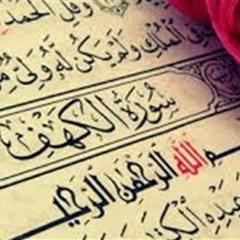 وَقُلِ الْحَمْدُ
الْمُلْكِ وَلَمْ يَكُن لَّهُ وَلِيٌّ
سُورَةُ الْكَهْفِ
اللَّهِ الرَّحْمَٰنِ الرَّحِيمِ
عَبْدِهِ